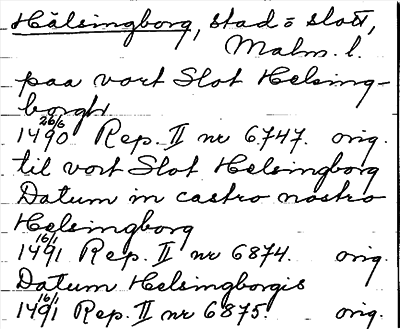 Hälsingborg, stad = slott,
Malm. l.
paa vort Slot Helsing-
borghr
26/6
1490 Rep. II nr 6747. orig.
til vort Slot Helsingborg
Datum in castro nostro
Helsingborg
16/1
1491 Rep. II nr 6874. orig.
Datum Helsingborgis
16/1
1491 Rep. II nr 6875. orig.